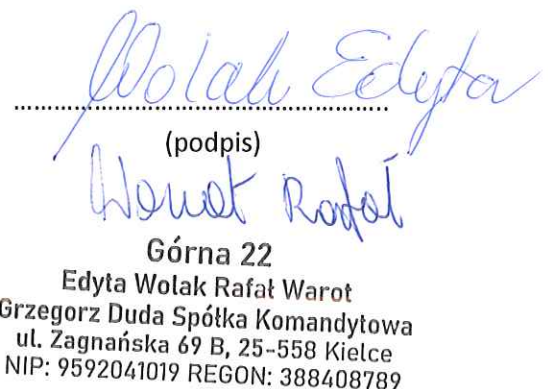 Wolak Edyta
................................................................
(podpis)
Warot Rafał
Górna 22
Edyta Wolak Rafał Warot
Grzegorz Duda Spółka Komandytowa
ul. Zagnańska 69 B, 25-558 Kielce
NIP: 9592041019 REGON: 388408789